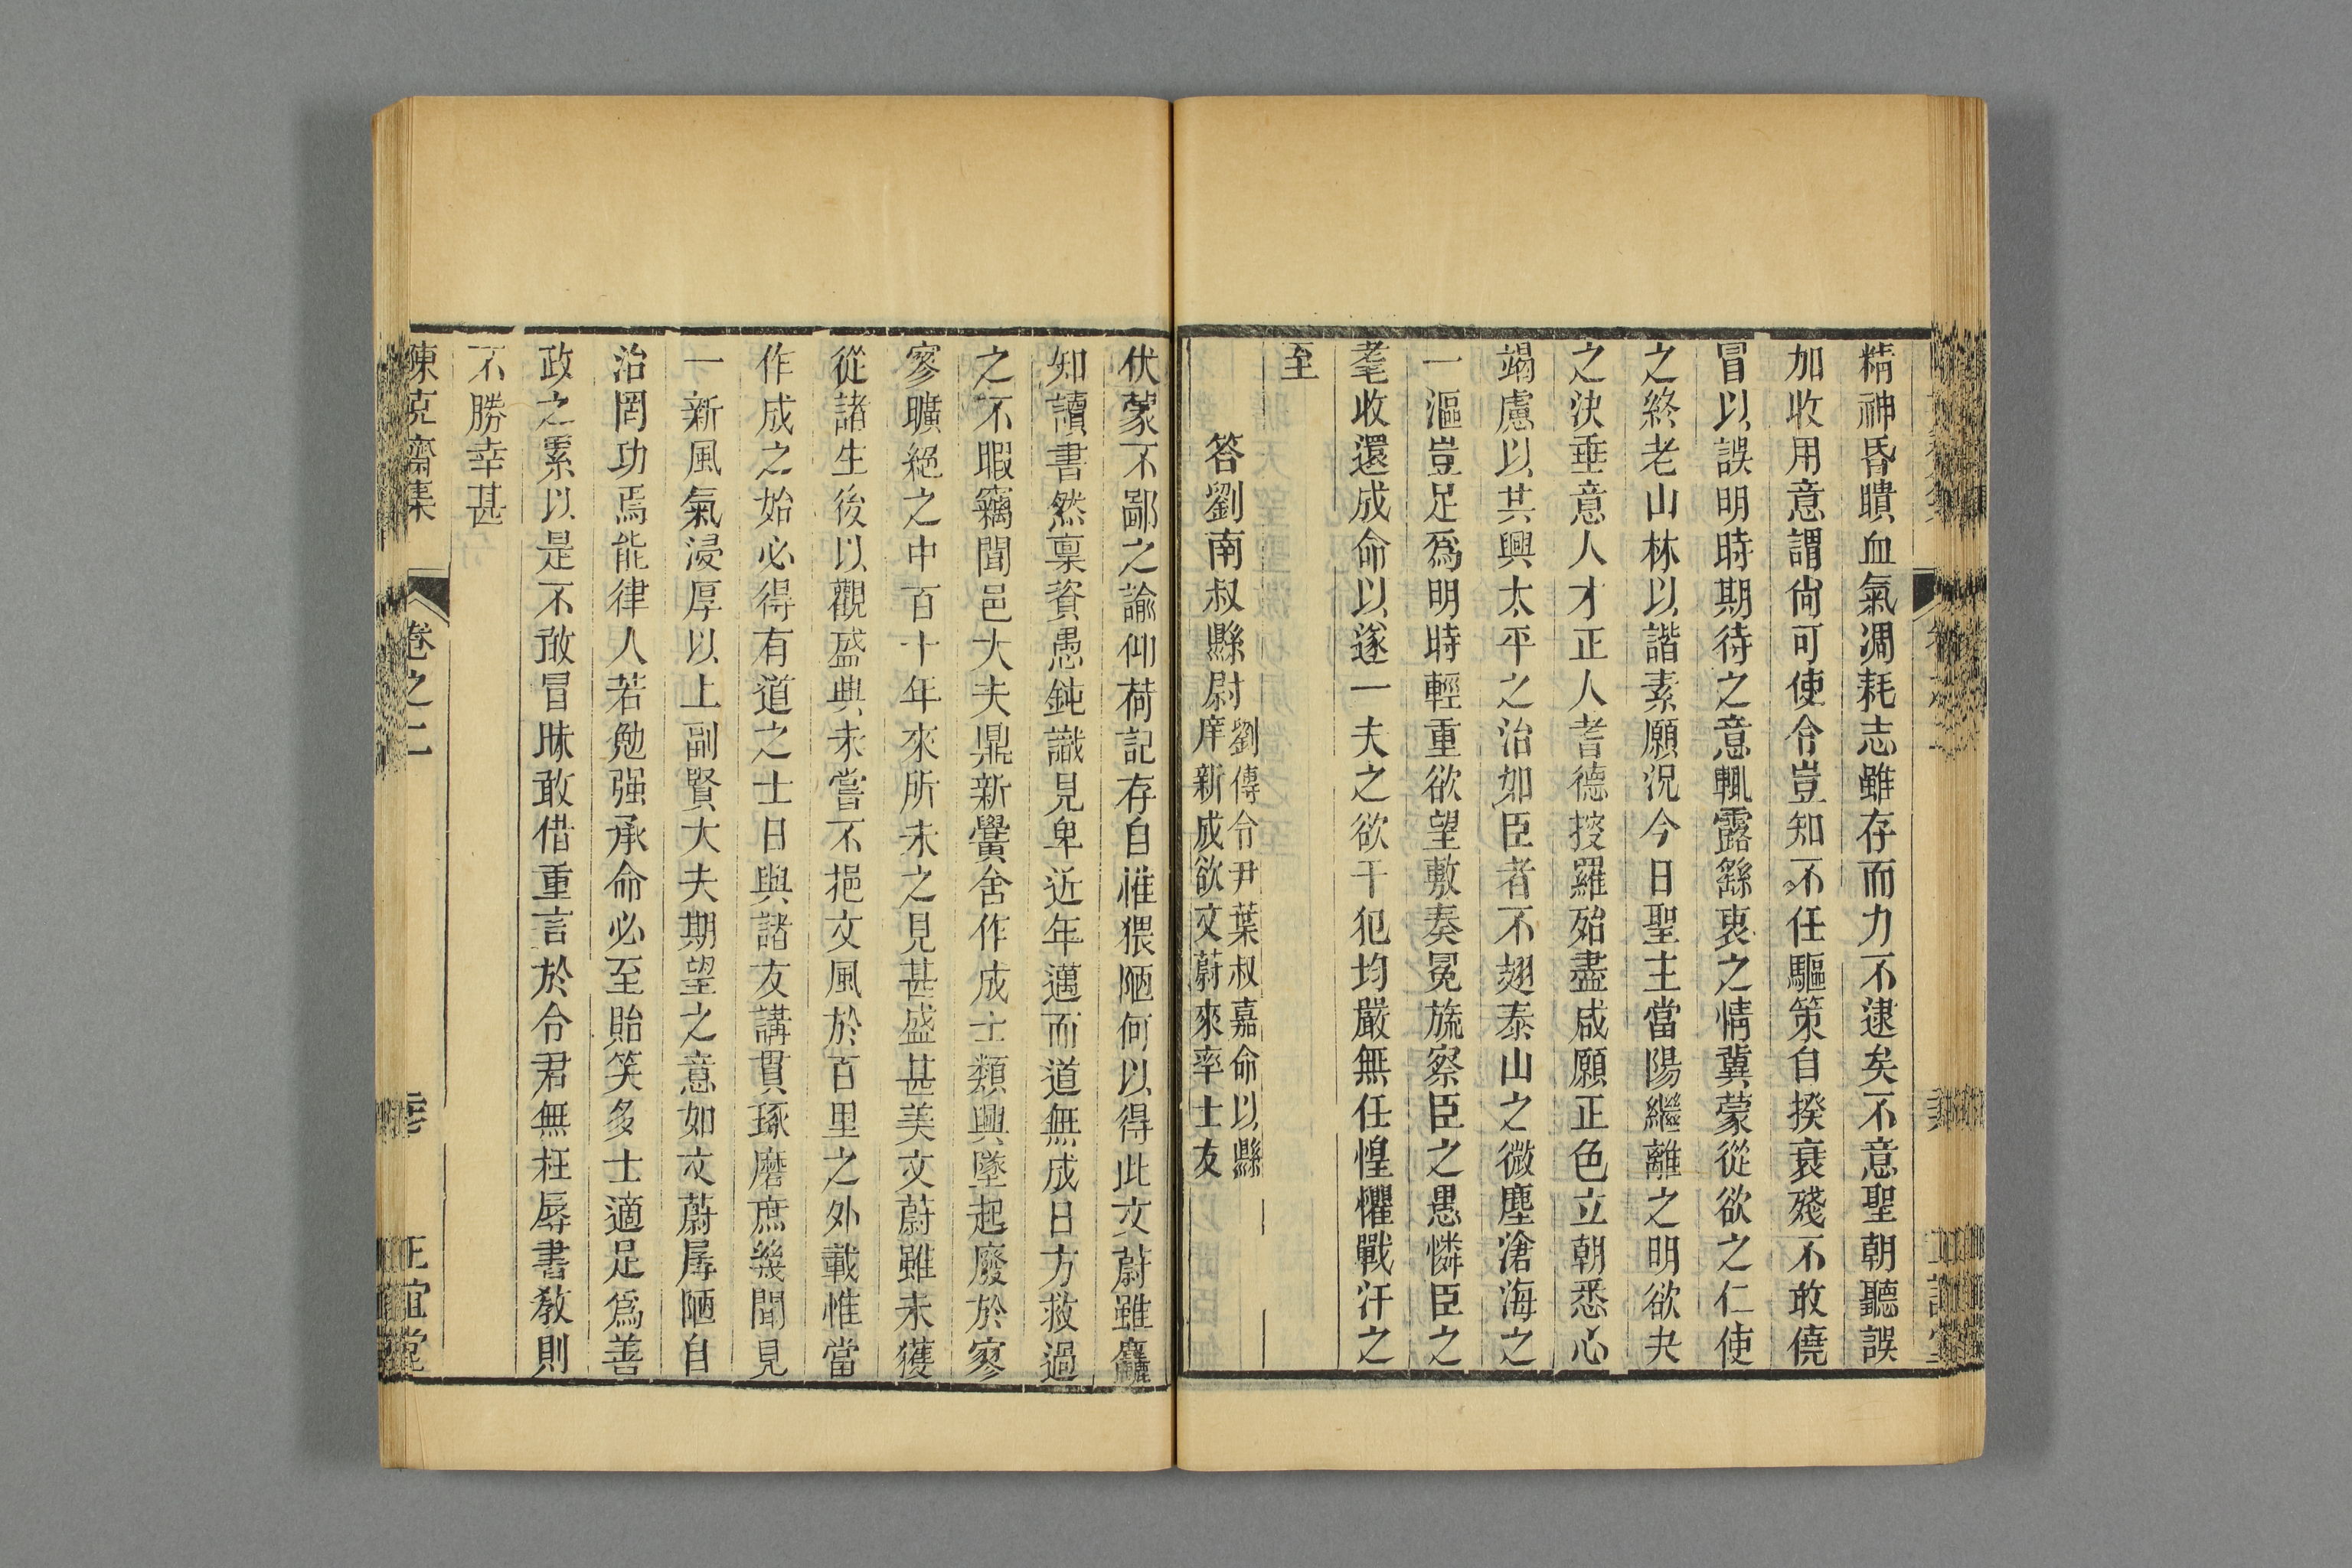 精神昏聵血氣凋耗志雖存而力不逮矣不意聖朝聽誤
加收用意謂尙可使令豈知不任驅策自揆衰殘不敢僥
冒以誤明時期待之意輒露繇衷之情冀蒙從欲之仁使
之終老山林以諧素願況今日聖主當陽繼離之明欲夬
之決垂意人才正人耆德挍羅殆盡咸願正色立朝悉心
竭慮以共興太平之治如臣者不翅泰山之微塵滄海之
一漚豈足爲明時輕重欲望敷奏冕旒察臣之愚憐臣之
耄收還成命以遂一夫之欲干犯均嚴無任惶懼戰汗之
至
答劉南叔縣尉
劉傳令尹葉叔嘉命以縣
庠新成欲文蔚來率士友
伏蒙不鄙之諭仰荷記存自惟猥陋何以得此文蔚雖麤
知讀書然稟資愚鈍識見卑近年邁而道無成日方救過
之不暇竊聞邑大夫鼎新黌舍作成士類興墜起廢於寥
寥曠絕之中百十年來所未之見甚盛甚美文蔚雖未獲
從諸生後以觀盛典未嘗不挹文風於百里之外載惟當
作成之始必得有道之士日與諸友講貫琢磨庶幾聞見
一新風氣浸厚以上副賢大夫期望之意如文蔚孱陋自
治罔功焉能律人若勉强承命必至貽笑多士適足爲善
政之累以是不敢冒昧敢借重言於令君無枉辱書教則
不勝幸甚
陳克齋集
卷之二
正誼堂